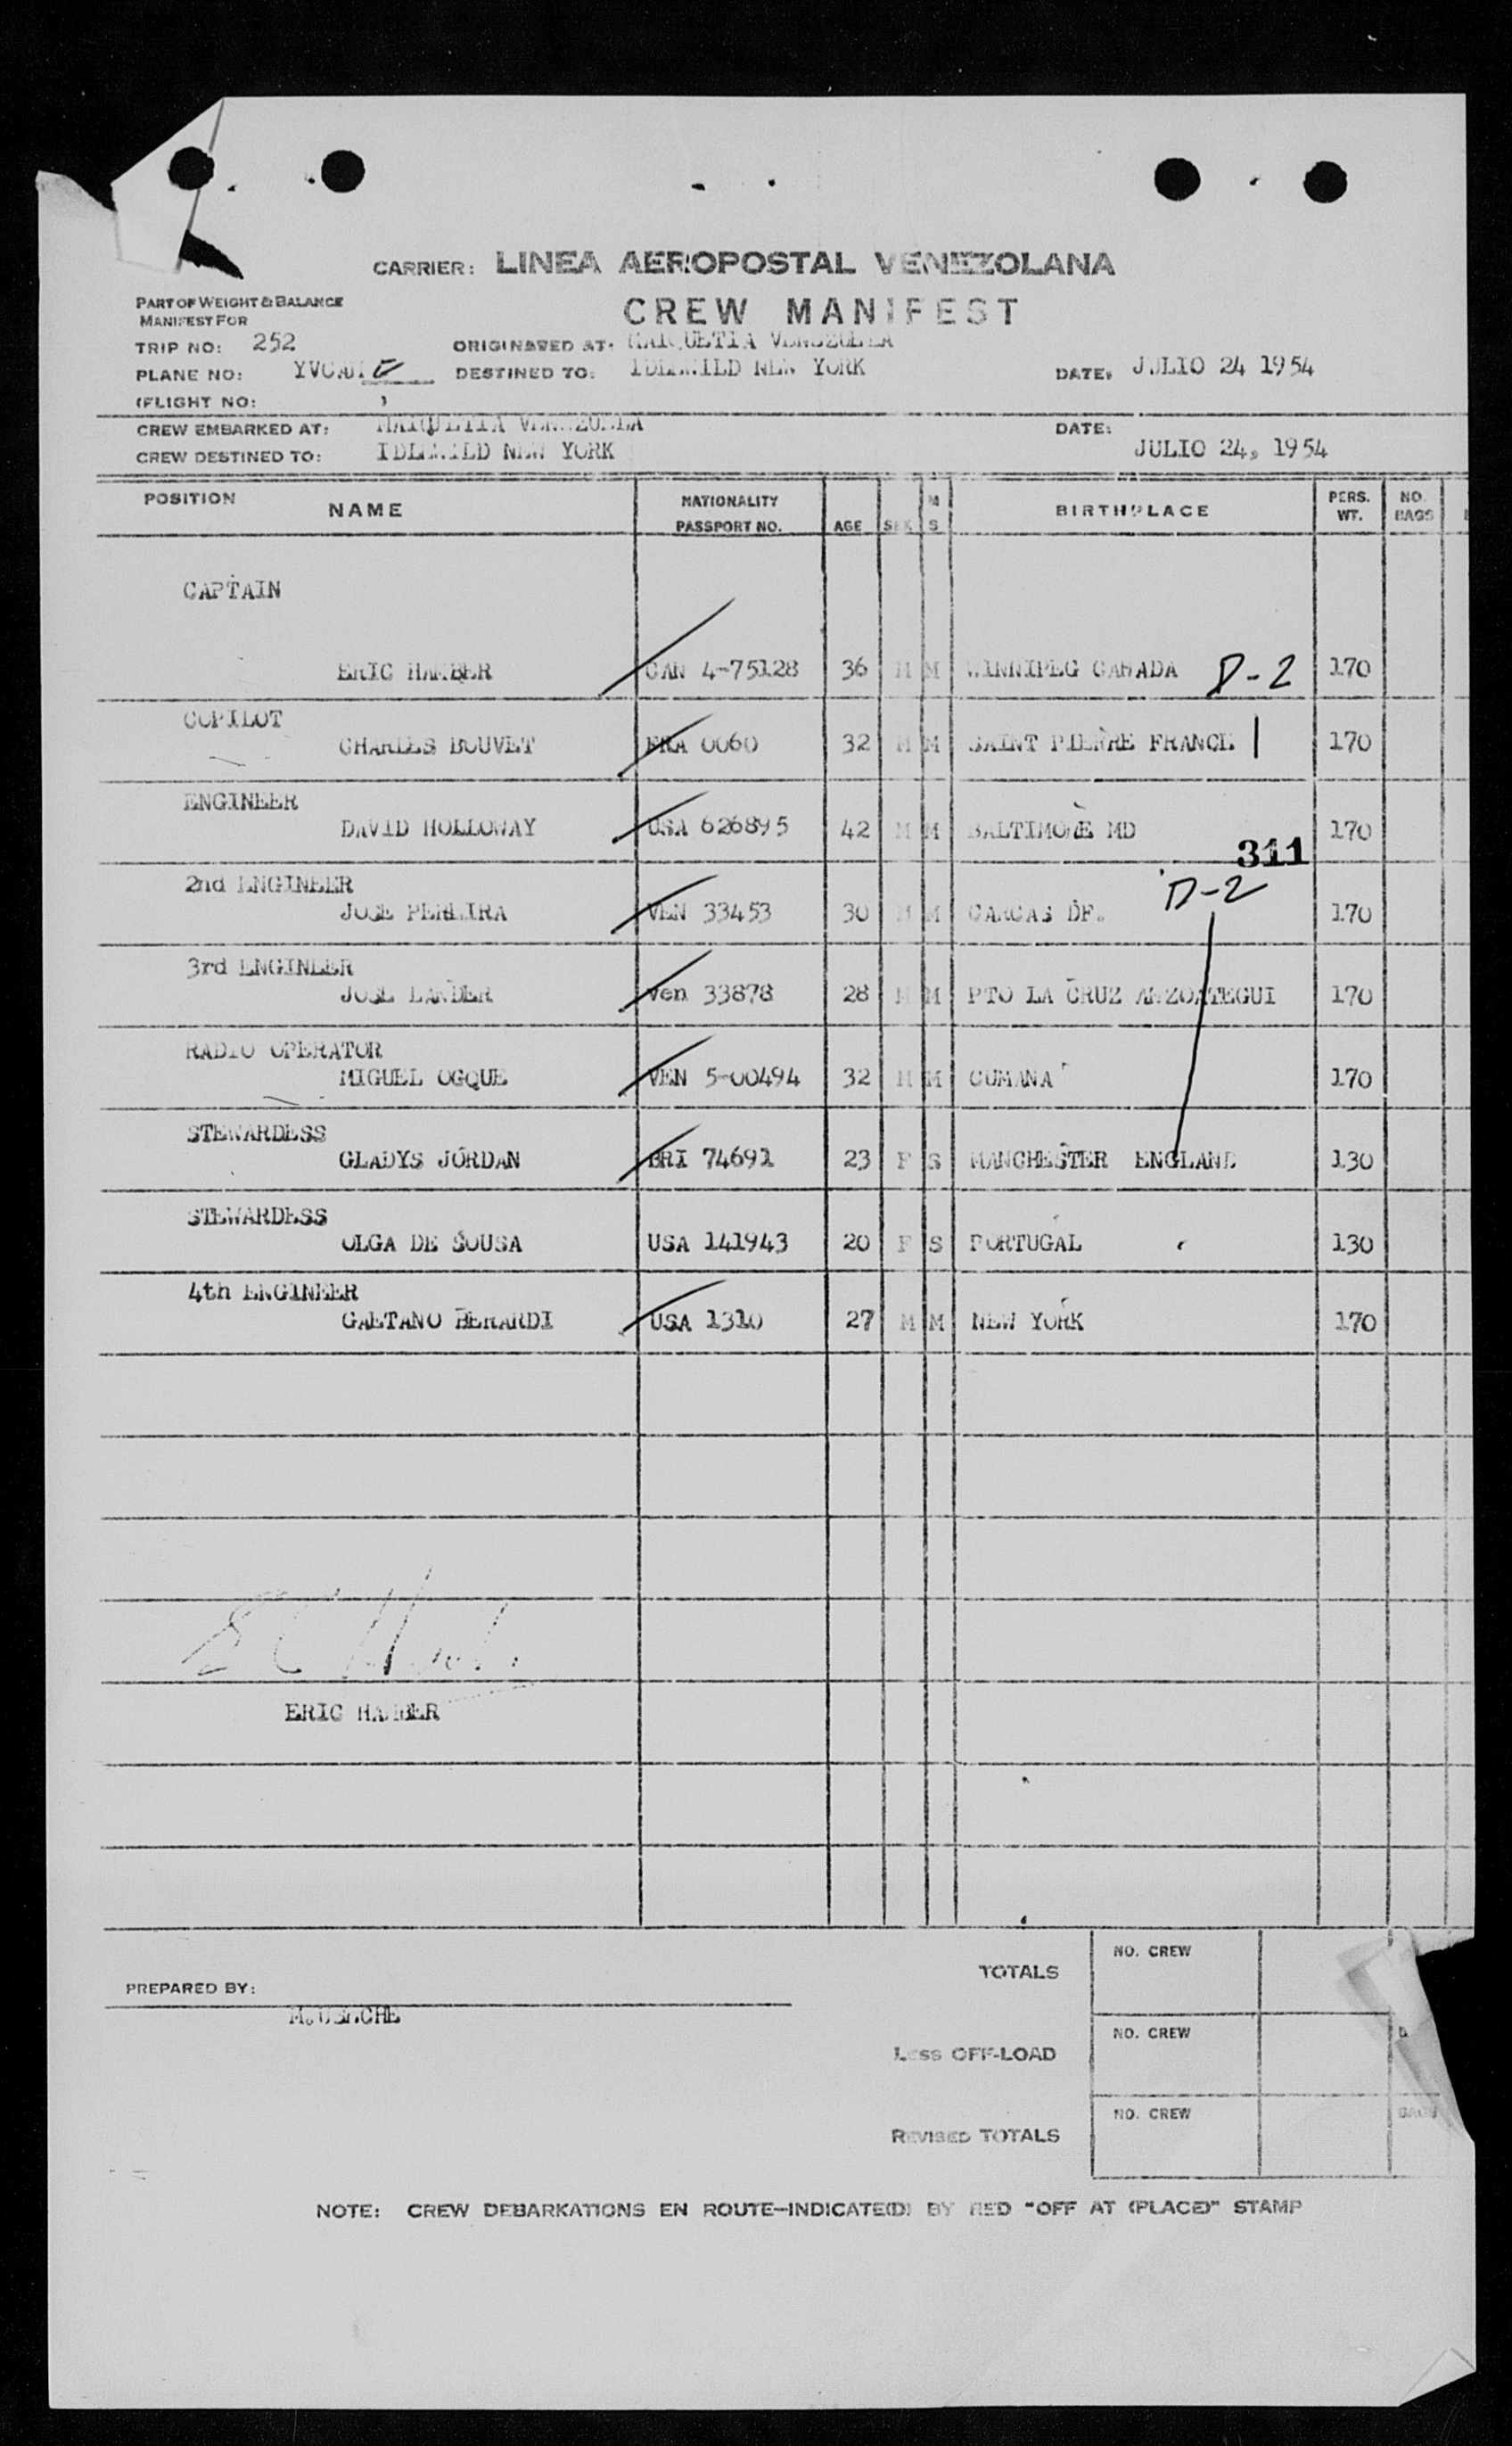 CARRIER: LINEA AEROPOSTAL VENEZOLANA
PART OF WEIGHT & BALANCE
MANIFEST FOR
CREW MANIFEST
TRIP NO: 252 ORIGINATED AT: MAIQUETIA VENEZUELA
PLANE NO: DESTINED TO: IDLEWILD NEW YORK DATE: JULIO 24 1954
(FLIGHT NO:
CREW EMBARKED AT: MAIQUETIA VENEZUELA DATE:
CREW DESTINED TO: IDLEWILD NEW YORK JULIO 24, 1954
POSITION NAME NATIONALITY PASSPORT NO. AGE SEX M S BIRTHPLACE PERS. WT. NO. BAGS
CAPTAIN
ERIC HAMBER CAN 4-75128 36 M M WINNIPEG CANADA D-2 170
COPILOT
CHARLES BOUVET FRA 0060 32 M M SAINT PIERRE FRANCE 1 170
ENGINEER
DAVID HOLLOWAY USA 626895 42 M M BALTIMORE MD 170
311
2nd ENGINEER
JOSE PEREIRA VEN 33453 30 M M CARCAS DF. D-2 170
3rd ENGINEER
JOSE LANDER Ven 33878 28 M M PTO LA CRUZ ANZOATEGUI 170
RADIO OPERATOR
MIGUEL OGQUE VEN 5-00494 32 M M CUMANA 170
STEWARDESS
GLADYS JORDAN BRI 74691 23 F S MANCHESTER ENGLAND 130
STEWARDESS
OLGA DE SOUSA USA 141943 20 F S PORTUGAL 130
4th ENGINEER
GAETANO BERARDI USA 1310 27 M M NEW YORK 170
ERIC HAMBER
TOTALS NO. CREW
PREPARED BY:
LESS OFF-LOAD NO. CREW
REVISED TOTALS NO. CREW BAGS
NOTE: CREW DEBARKATIONS EN ROUTE-INDICATE(D) BY RED "OFF AT (PLACE)" STAMP